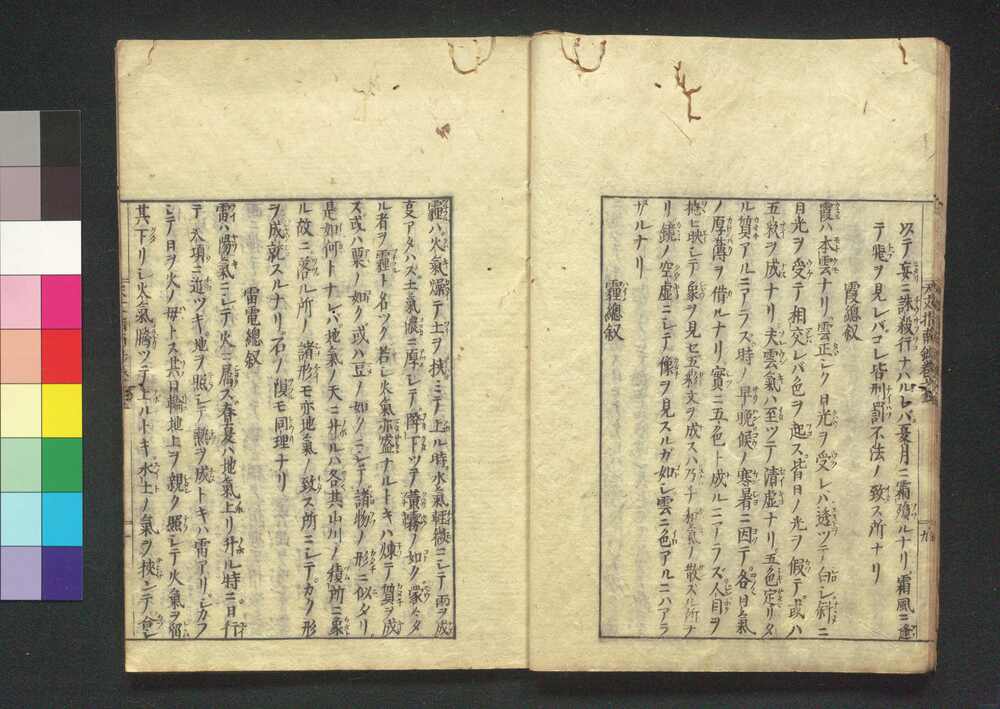 以テ妄ニ誅殺行ナハルレバ夏月ニ霜隕ルナリ霜風ニ逢
テ飛ヲ見レバコレ皆刑罰不法ノ致ス所ナリ
霞總叙
霞ハ本雲ナリ雲正シク日光ヲ受レバ透ツテ白シ斜ニ
日光ヲ受テ相交レバ色ヲ起ス皆日ノ光ヲ假テ或ハ
五彩ヲ成ナリ夫雲氣ハ至ツテ清虚ナリ五色定リタ
ル質アルニアラズ時ノ早晩候ノ寒暑ニ因テ各日ト氣
ノ厚薄ヲ借ルナリ實ニ五色ト成ルニアラズ人目ヲ
捴ヒ映シテ象ヲ見セ五彩文ヲ成スハ乃チ和氣ノ散ズル所ナ
リ鏡ノ空虚ニシテ像ヲ見スルガ如シ雲ニ色アルニハアラ
ザルナリ
霾總叙
霾ハ火氣燥テ土ヲ挟ミテ上ル時水氣軽微ニシテ雨ヲ成
ニアタハズ土氣濃ニ厚シテ降下ツテ黄霧ノ如ク蒙々タ
ル者ヲ霾ト名ツク若シ火氣亦盛ナルトキハ煉テ質ヲ成
ス或ハ栗ノ如ク或ハ豆ノ如クニシテ諸物ノ形ニ似タリ
是如何トナレバ地氣ノ天ニ升ルハ各其山川ノ積所ニ象
ル故ニ落ル所ノ諸形モ亦地氣ノ致ス所ニシテカク形
ヲ成就スルナリ石ノ復モ同理ナリ
雷電總叙
雷ハ陽氣ニシテ火ニ屬ス春夏ハ地氣上リ升ル時ニ日行
テ天項ニ近ツキ地ヲ照シテ熱ヲ成トキハ雷アリシカフ
シテ日ヲ火ノ母トス其日輪地上ヲ親ク照シテ火氣ヲ
其下リシ火氣騰ツテ上ルトキ水土ノ氣ヲ挟ンテ合シ